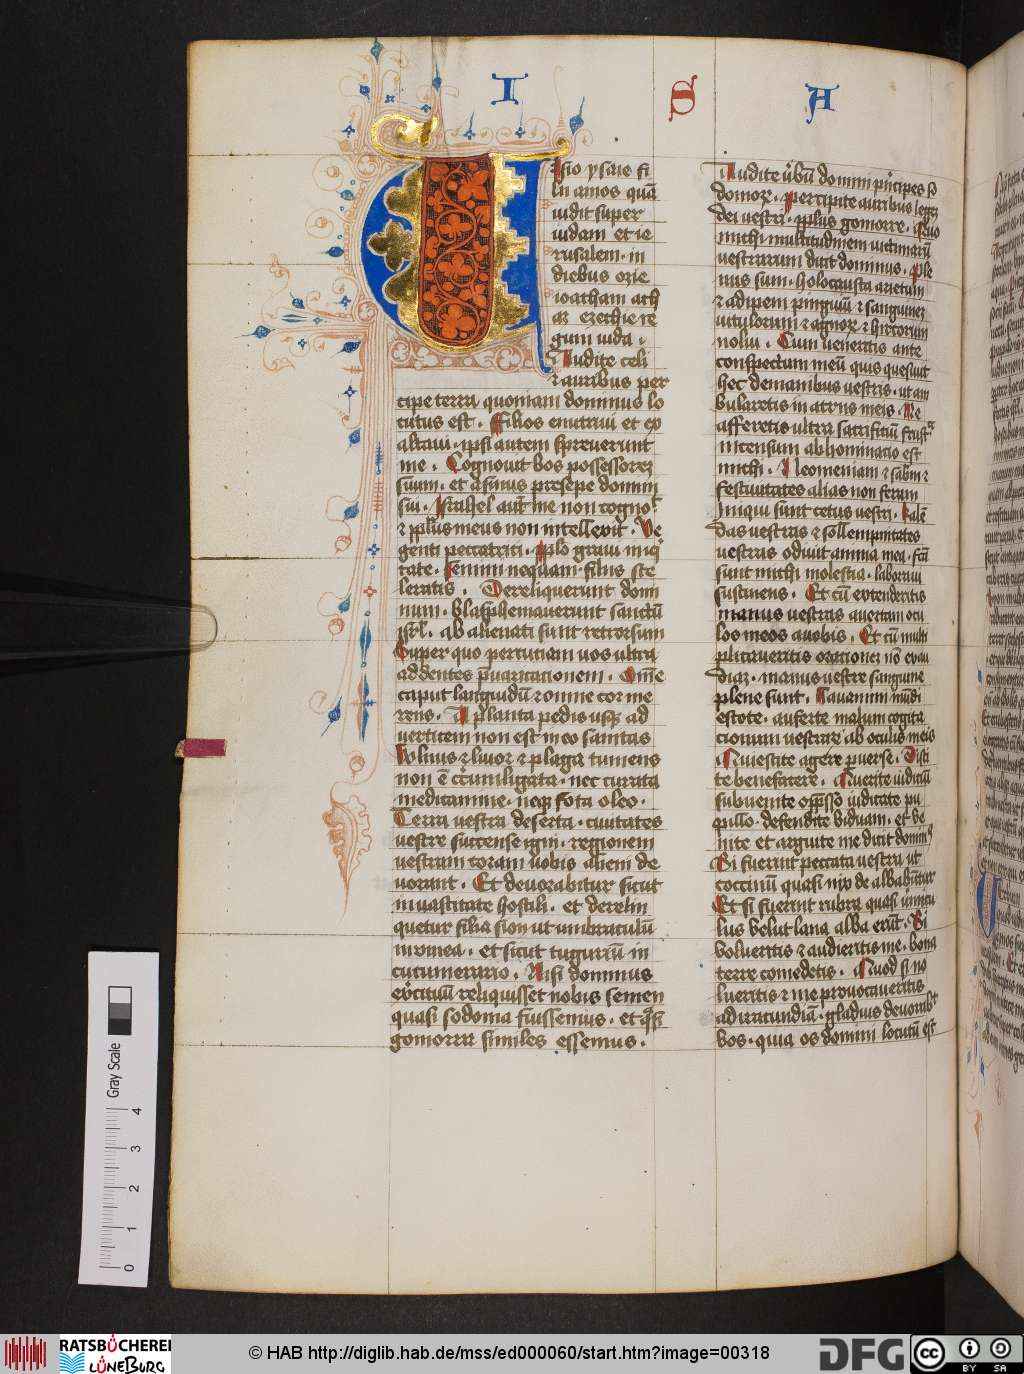 I S A
Visio ysaie fi
lii amos quā
vidit super
iudam et ie
rusalem · in
diebus ozie
ioatham ath
az ezechie re
gum iuda ·
Audite celi
et auribus per
cipe terra quoniam dominus lo
cutus est · Filios enutrivi et ex
altaui · ipsi autem spreverunt
me · Cognouit bos possessorem
suum · et asinus presepe domini
sui · Israhel aut̄ me non cogno
⁊ pplus meus non intellexit · Ve
genti peccatrici · pplo graui iniq
tate · semini nequam · filiis sce
leratis · Dereliquerunt domi
num · blasphemauerunt sanctū
isrl̄ · ab alienati sunt retrorsum
Super quo percutiam uos ultra
addentes p̄uaricationem · Omne
caput languidū ⁊ omne cor me
rens · A planta pedis usqꝫ ad
verticem non est in eo sanitas
Vulnus ⁊ livor ⁊ plaga tumens
non ē circūligata · nec curata
medicamine · neqꝫ fota oleo ·
Terra vestra deserta · ciuitates
vestre succense igni · regionem
vestram coram uobis alieni de
uorant · Et devorabitur sicut
in vastitate hostili · et derelin
quetur filia sion ut umbraculū
in vinea · et sicut tugurium in
cucumerario · Nisi dominus
exercituū reliquisset nobis semen
quasi sodoma fuissemus · et qͣsi
gomorra similes essemus ·
Audite ūbū domini principes so
domoꝝ · percipite auribus legem
dei vestri · pplus gomorre · Quo
michi multitudinem victimarū
vestrarum dicit dominus · Ple
nus sum · holocausta arietum
⁊ adipem pinguiū ⁊ sanguinem
vitulorum ⁊ agnoꝝ ⁊ hircorum
nolui · Cum veneritis ante
conspectum meū quis quesivit
hec de manibus vestris · ut am
bularetis in atriis meis · Ne
afferetis ultra sacrificiū frustͣ
incensum abhominacio est
michi · Neomeniam ⁊ sabbm̄ ⁊
festivitates alias non feram
Iniqui sunt cetus vestri · kalē
das vestras ⁊ sollempnitates
vestras odivit anima mea · fca
sunt michi molestia · laboravi
sustinens · Et cū extenderitis
manus vestras avertam ocu
los meos a vobis · Et cū multi
plicaveritis orationes nō exau
diam · manus vestre sanguine
plene sunt · Lavamini mūdi
estote · auferte malum cogita
cionum vestrarum ab oculis meis
Quiescite agere perverse · Disci
te benefacere · Querite iudiciū
subvenite opp̄sso iudicate pu
pillo · defendite viduam · et ve
nite et arguite me dicit dominꝰ
Si fuerint peccata vestra ut
coccinū quasi nix de albabūtur
Et si fuerint rubra quasi v̄micu
lus velut lana alba erūt · Si
volueritis ⁊ audieritis me · bona
terre comedetis · Quod si no
lueritis ⁊ me provocaveritis
ad iracundiā · gladius devorabᵗ
vos · quia os domini locutū est
Gray Scale
0 1 2 3 4
RATSBÜCHEREI
LÜNEBURG
© HAB http://diglib.hab.de/mss/ed000060/start.htm?image=00318
DFG
cc BY SA